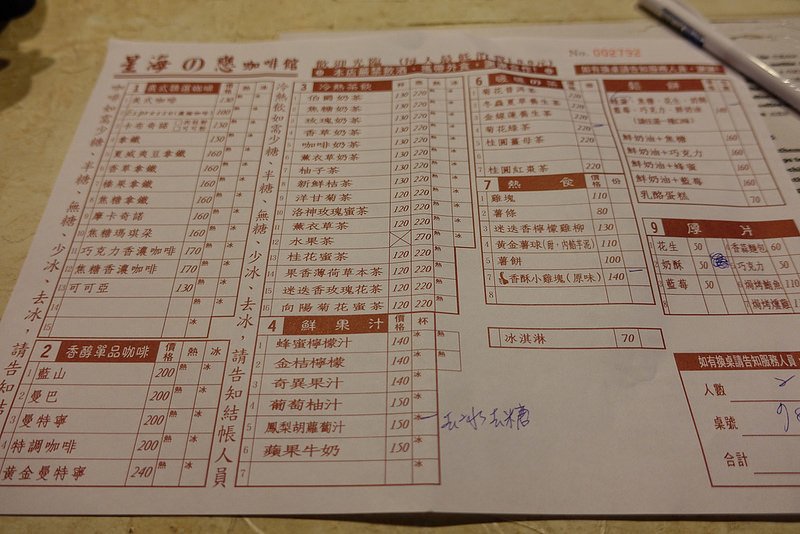 星海の戀咖啡館
No. 002792
1 義式精選咖啡
卡布奇諾
拿鐵
夏威夷豆拿鐵 160
香草拿鐵 160
榛果拿鐵 160
焦糖拿鐵 160
摩卡奇諾 160
焦糖瑪琪朵 160
巧克力香濃咖啡 170
焦糖香濃咖啡 170
可可亞 130
咖啡如需少糖、半糖、無糖、少冰、去冰,請告知結
2 香醇單品咖啡 價格 熱 冰
1 藍山 200
2 曼巴 200
3 曼特寧 200
4 特調咖啡 200
黃金曼特寧 240
冷熱飲如需少糖、半糖、無糖、少冰、去冰,請告知結帳人員
3 冷熱茶飲
伯爵奶茶 130
玫瑰奶茶 130
香草奶茶 130
咖啡奶茶 130
薰衣草奶茶 130
柚子茶 130 220
新鮮桔茶 130 220
洋甘菊茶 120 220
洛神玫瑰蜜茶 120 220
薰衣草茶 120 220
水果茶 270
桂花蜜茶 120 220
果香薄荷草本茶 120 220
迷迭香玫瑰花茶 120 220
向陽菊花蜜茶 120 220
4 鮮果汁 價格 杯
1 蜂蜜檸檬汁 140
2 金桔檸檬 140
3 奇異果汁 140
4 葡萄柚汁 150
5 鳳梨胡蘿蔔汁 150
6 蘋果牛奶 150
7
去冰去糖
6
菊花普洱茶 220
冬蟲夏草養生茶 220
金線蓮養生茶 220
菊花綠茶 220
桂圓薑母茶 220
桂圓紅棗茶 220
7 熱食 價格 份
1 雞塊 110
2 薯條 80
3 迷迭香檸檬雞柳 130
4 黃金薯球(甜,內餡芋泥) 110
5 薯餅 100
7 香酥小雞塊(原味) 140
8
冰淇淋 70
鬆餅
鮮奶油+焦糖 160
鮮奶油+巧克力 160
鮮奶油+蜂蜜 160
鮮奶油+藍莓 160
乳酪蛋糕 70
9 厚片
1 花生 50
2 奶酥 50
3 藍莓 50
香蒜麵包 60
巧克力 50
焗烤鮪魚 110
如有換桌請告知服務人員
人數 2
桌號
合計